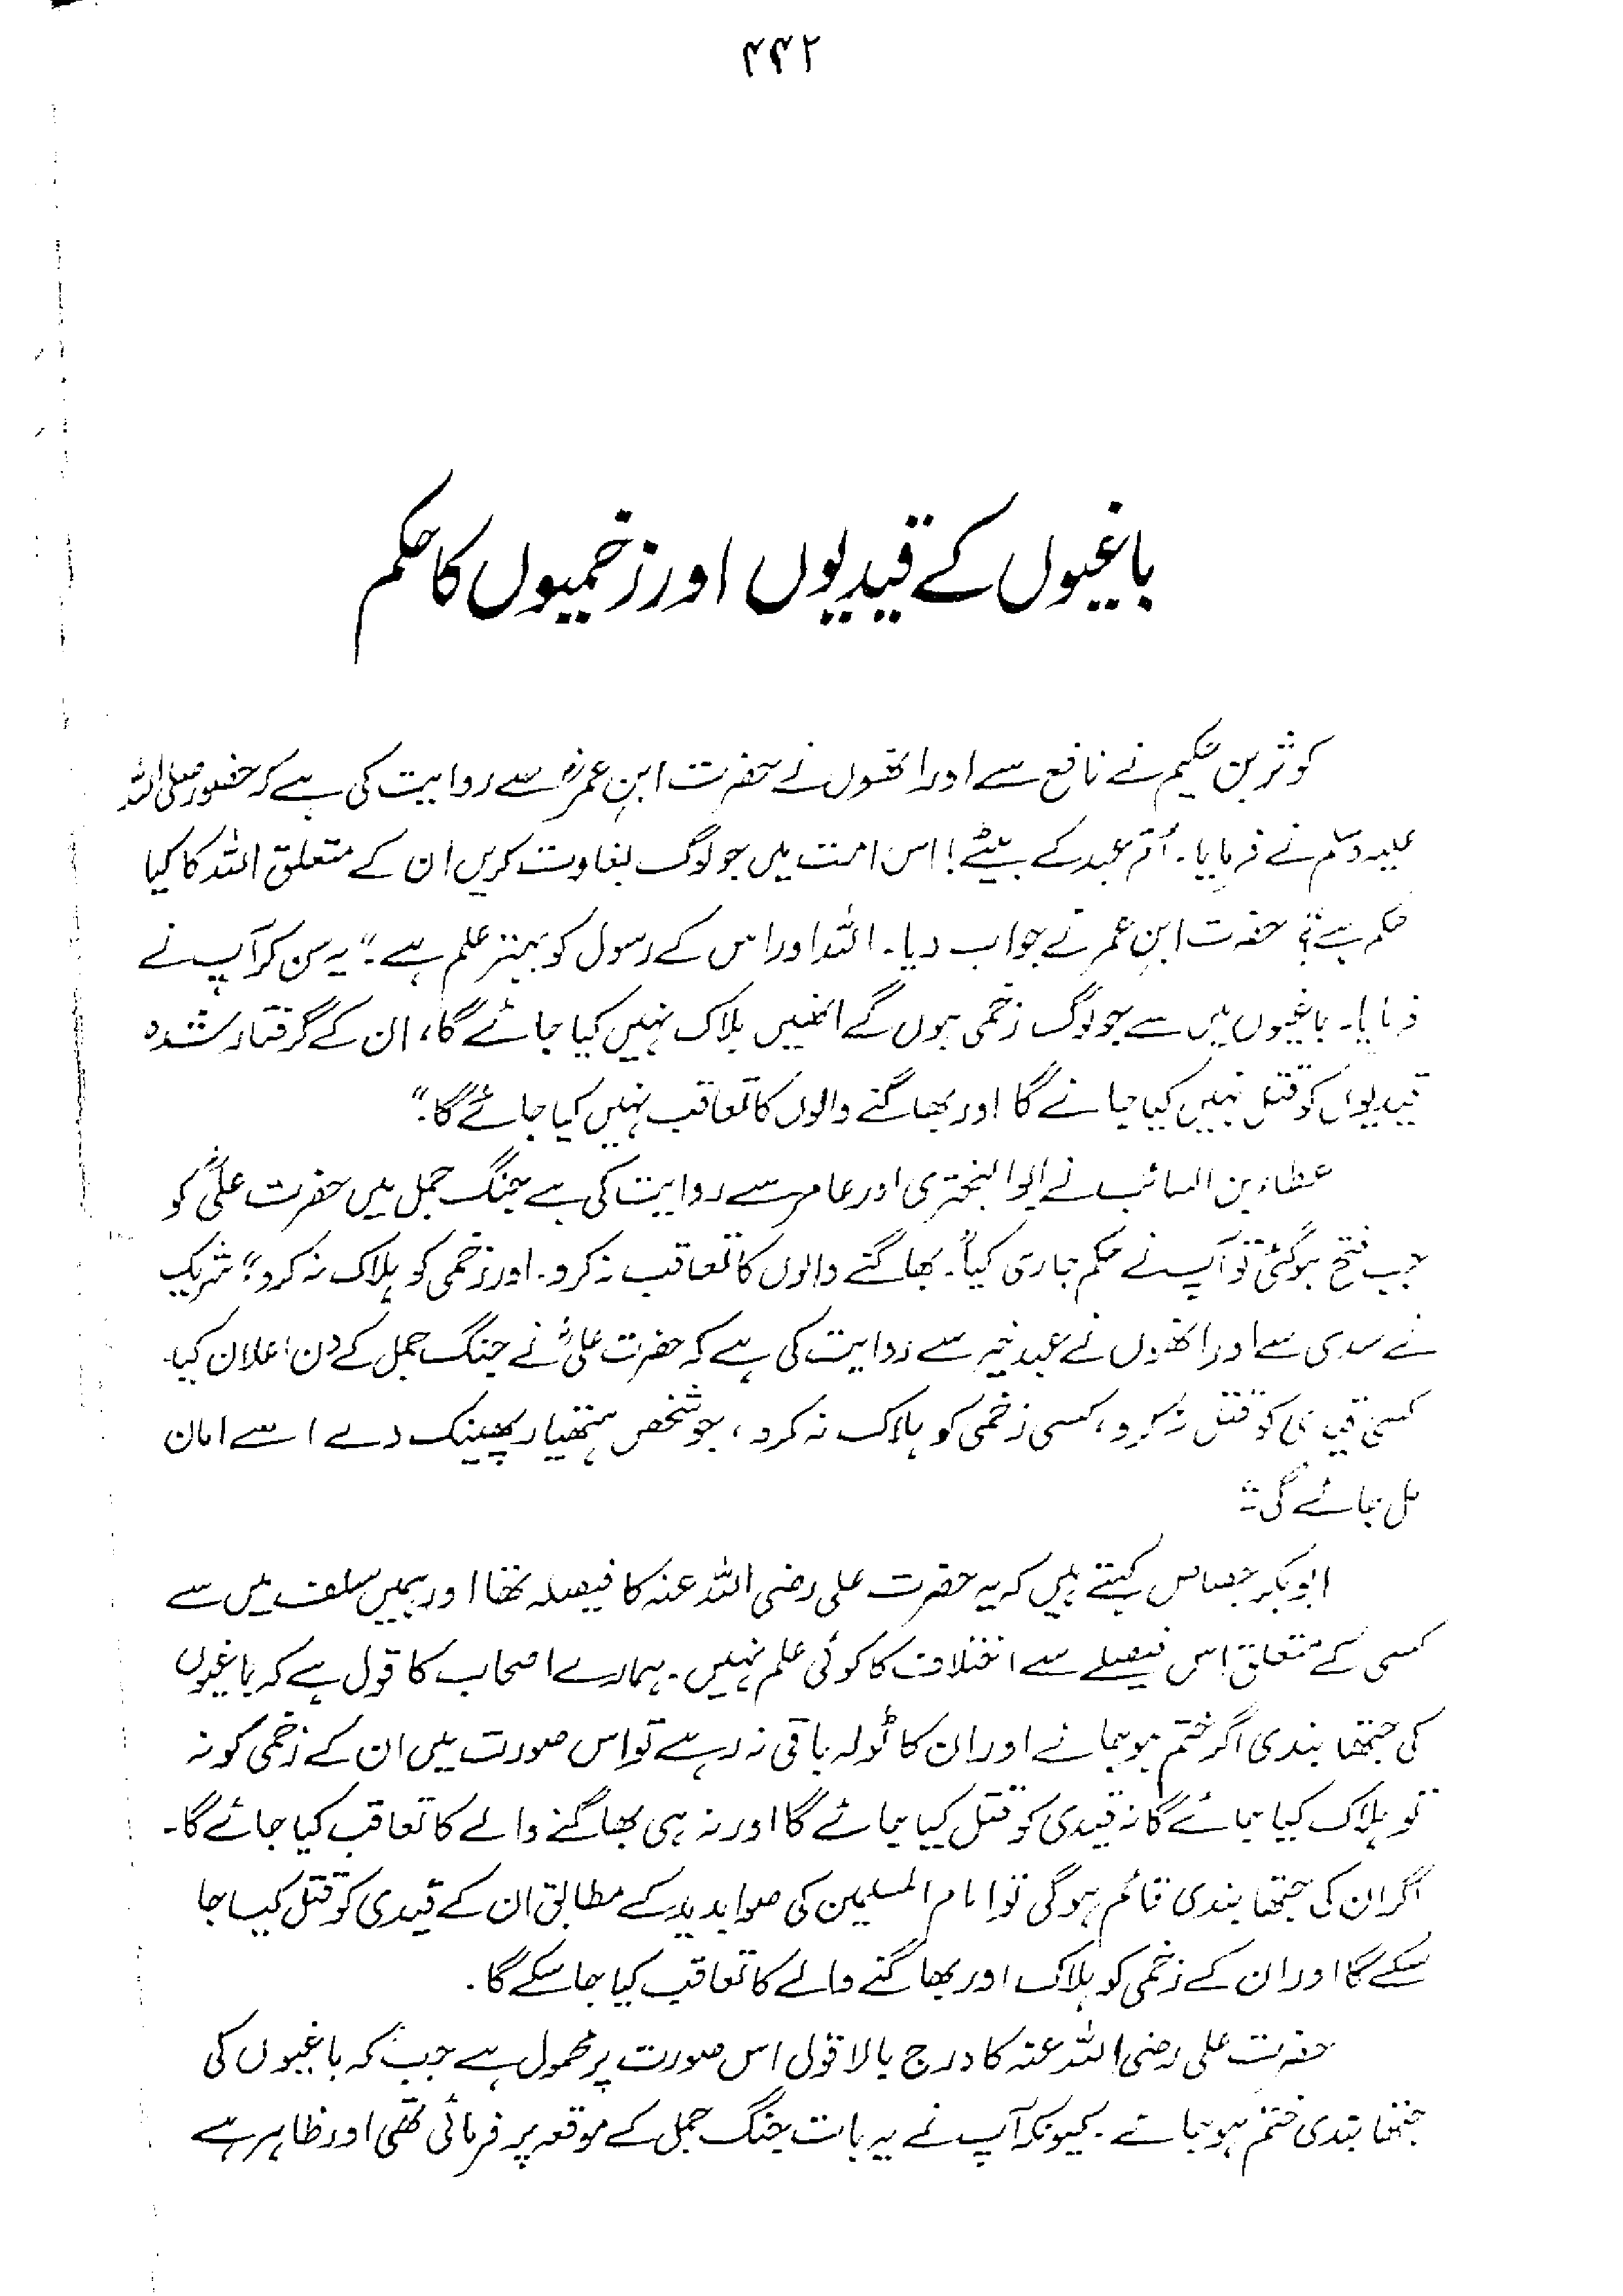 ۴۴۲
باغیوں کے قیدیوں اور زخمیوں کا حکم
کوثر بن حکیم نے نافع سے اور انھوں نے حضرت ابنِ عمرؓ سے روایت کی ہے کہ حضور صلی اللہ
علیہ وسلم نے فرمایا۔ اُم عبد کے بیٹے! اس امت میں جو لوگ بغاوت کریں ان کے متعلق اللہ کا کیا
حکم ہے؟ حضرت ابنِ عمر نے جواب دیا۔ اللہ اور اس کے رسول کو بہتر علم ہے۔" یہ سن کر آپ نے
فرمایا۔ باغیوں میں سے جو لوگ زخمی ہوں گے انھیں ہلاک نہیں کیا جائے گا، ان کے گرفتار شدہ
قیدیوں کو قتل نہیں کیا جائے گا اور بھاگنے والوں کا تعاقب نہیں کیا جائے گا۔"
عطاء بن السائب نے ابوالبختری اور عامر سے روایت کی ہے جنگ جمل میں حضرت علیؓ کو
جب فتح ہوگئی تو آپ نے حکم جاری کیا۔ "بھاگنے والوں کا تعاقب نہ کرو۔ اور زخمی کو ہلاک نہ کرو" شریک
نے سدی سے اور انھوں نے عبد خیر سے روایت کی ہے کہ حضرت علیؓ نے جنگ جمل کے دن اعلان کیا۔
کسی قیدی کو قتل نہ کرو، کسی زخمی کو ہلاک نہ کرو، جو شخص ہتھیار پھینک دے اسے امان
مل جائے گی۔"
ابوبکر جصاص کہتے ہیں کہ یہ حضرت علی رضی اللہ عنہ کا فیصلہ تھا اور ہمیں سلف میں سے
کسی کے متعلق اس فیصلے سے اختلاف کا کوئی علم نہیں۔ ہمارے اصحاب کا قول ہے کہ باغیوں
کی جتھا بندی اگر ختم ہوجائے اور ان کا ٹولہ باقی نہ رہے تو اس صورت میں ان کے زخمی کو نہ
تو ہلاک کیا جائے گا نہ قیدی کو قتل کیا جائے گا اور نہ ہی بھاگنے والے کا تعاقب کیا جائے گا۔
اگر ان کی جتھا بندی قائم ہوگی تو امام المسلمین کی صوابدید کے مطابق ان کے قیدی کو قتل کیا جا
سکے گا اور ان کے زخمی کو ہلاک اور بھاگنے والے کا تعاقب کیا جاسکے گا۔
حضرت علی رضی اللہ عنہ کا درج بالا قول اس صورت پر محمول ہے جب کہ باغیوں کی
جتھا بندی ختم ہوجائے۔ کیونکہ آپ نے یہ بات جنگ جمل کے موقعہ پر فرمائی تھی اور ظاہر ہے